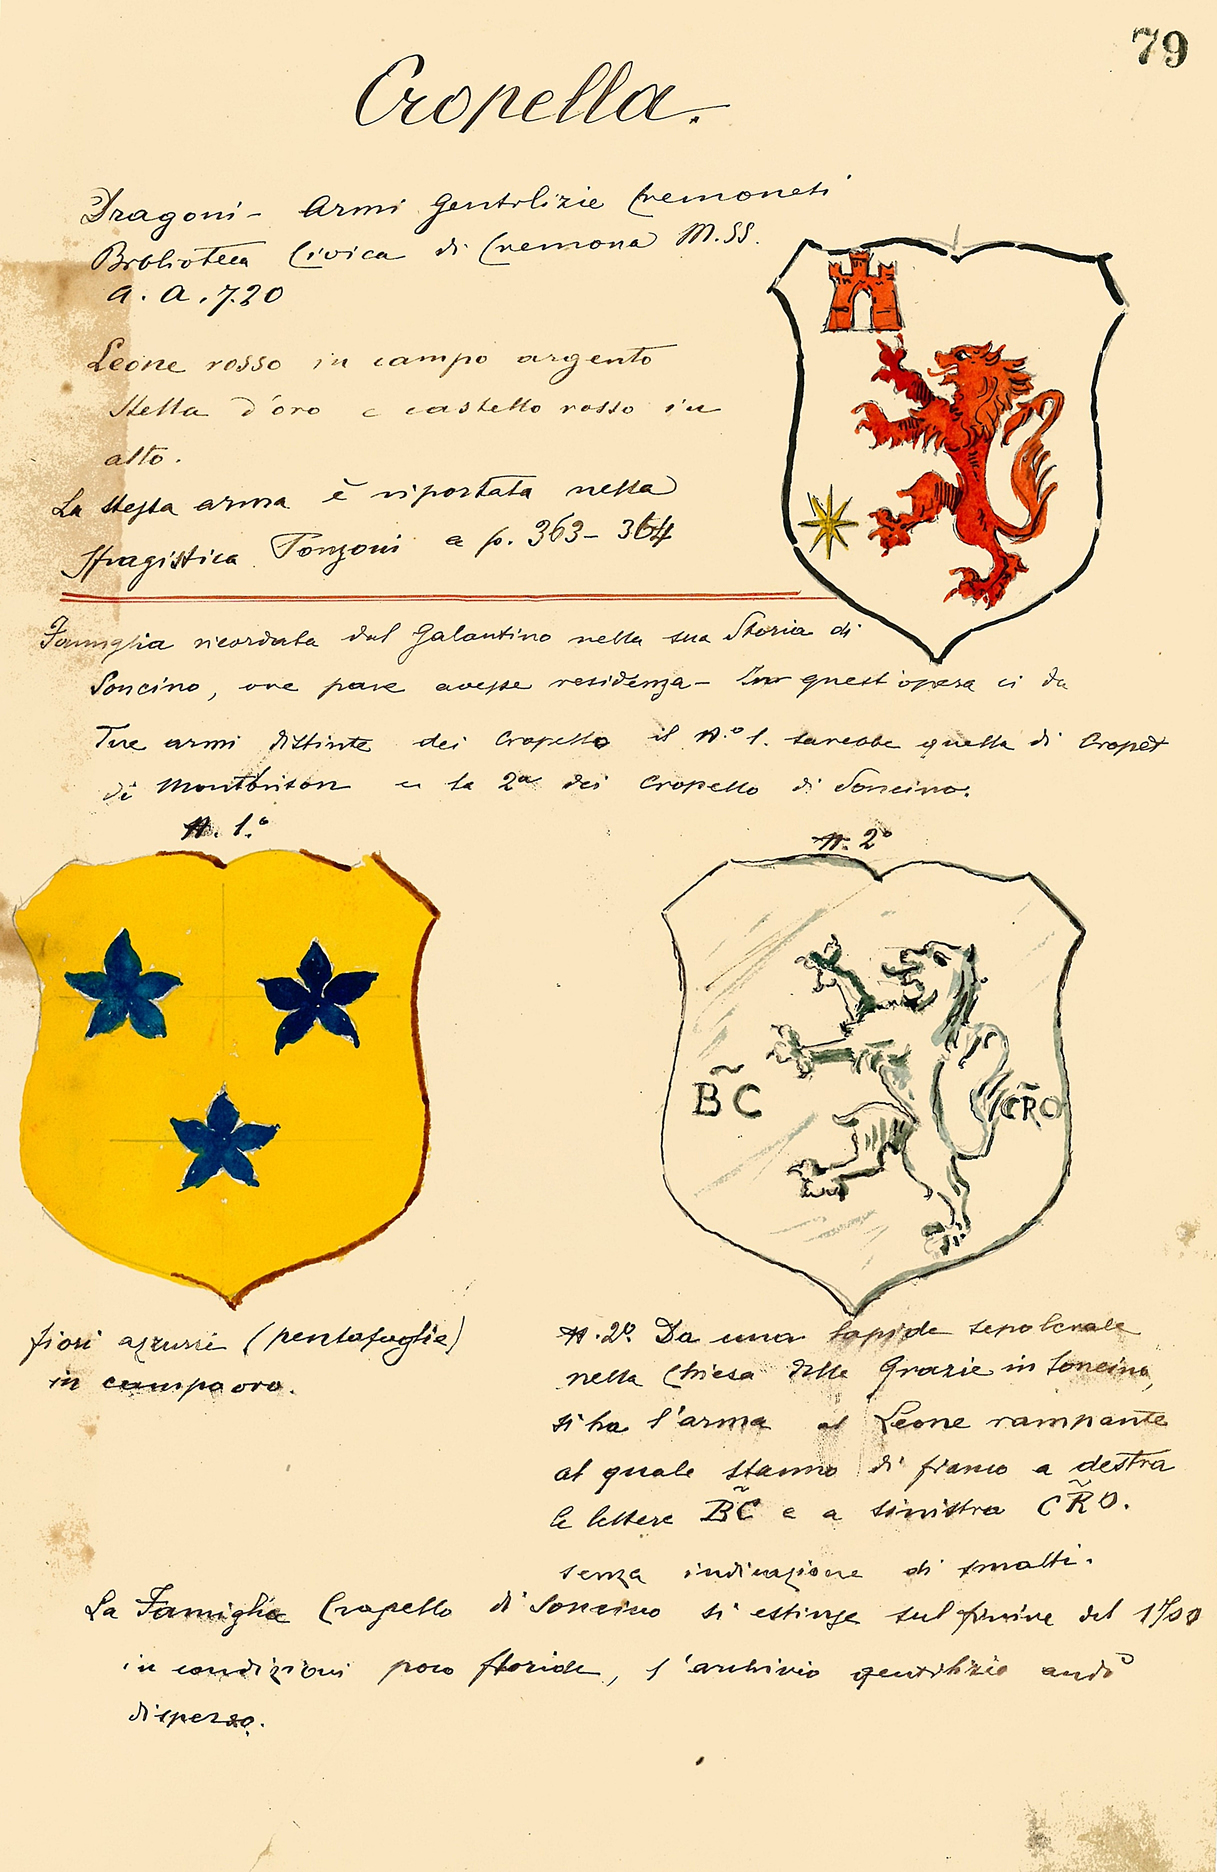 79
Cropella.
Dragoni - Armi Gentilizie Cremonesi
Biblioteca Civica di Cremona M.SS.
a. a. 7.20
Leone rosso in campo argento
Stella d'oro e castello rosso in
alto.
La stessa arma è riportata nella
Sfragistica Tonzoni a p. 363-364
Famiglia ricordata dal Galantino nella sua Storia di
Soncino, ove pare avesse residenza - In quest'opera ci da
Tre armi distinte dei Cropello il N.º 1. sarebbe quella di Cropet
di Montbrison e la 2ª dei Cropello di Soncino.
N. 1.º
N. 2º
B̃ C
C R̃ O
fiori azzurri (pentafoglie)
in campo oro.
N. 2º. Da una lapide sepolcrale
nella Chiesa delle Grazie in Soncino,
si ha l'arma al Leone rampante
al quale stanno di fianco a destra
le lettere B̃C e a sinistra C R̃ O.
senza indicazione di smalti.
La Famiglia Cropello di Soncino si estinse sul finire del
in condizioni poco floride, l'archivio gentilizio andò
disperso.